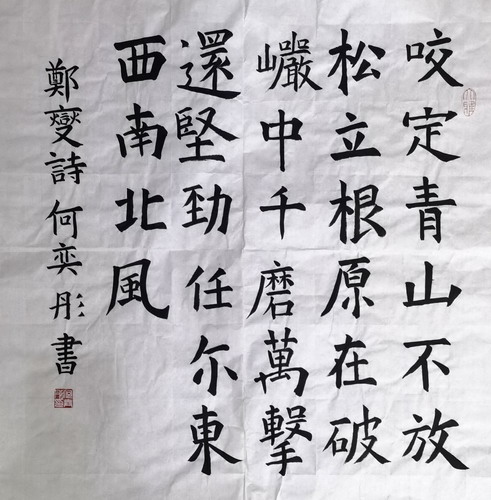 咬定青山不放
松立根原在破
巗中千磨萬擊
還堅勁任尓東
西南北風
鄭燮詩何奕彤書